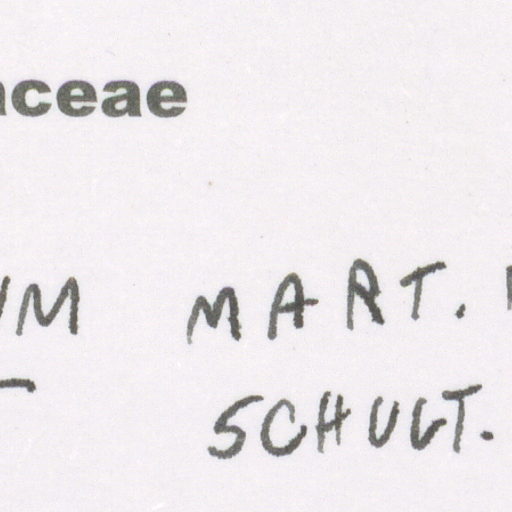 aceae
UM MART.
SCHULT.